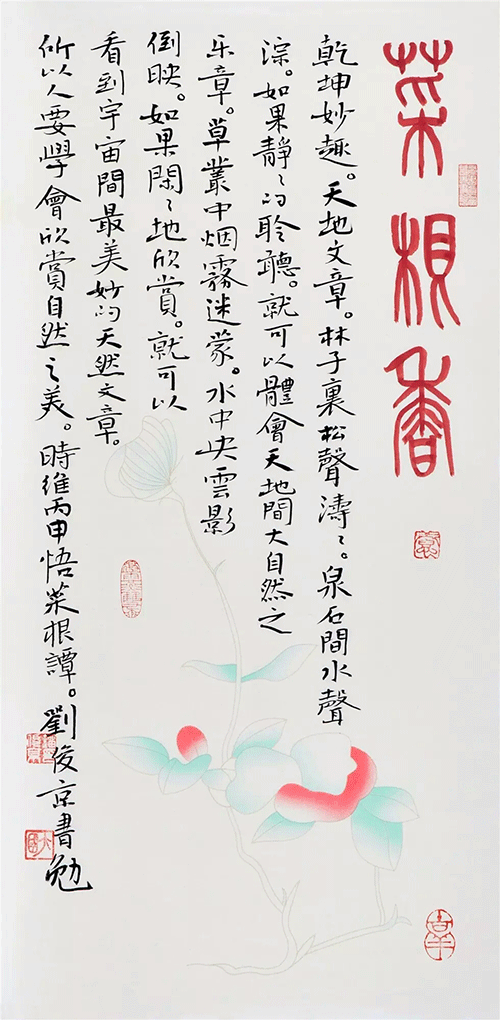 菜根香
乾坤妙趣。天地文章。林子裏松聲濤〻。泉石間水聲
淙。如果靜〻的聆聽。就可以體會天地間大自然之
乐章。草叢中烟霧迷蒙。水中央雲影
倒映。如果閑〻地欣賞。就可以
看到宇宙間最美妙的天然文章。
所以人要學會欣賞自然之美。時維丙申悟菜根譚。劉俊京書勉